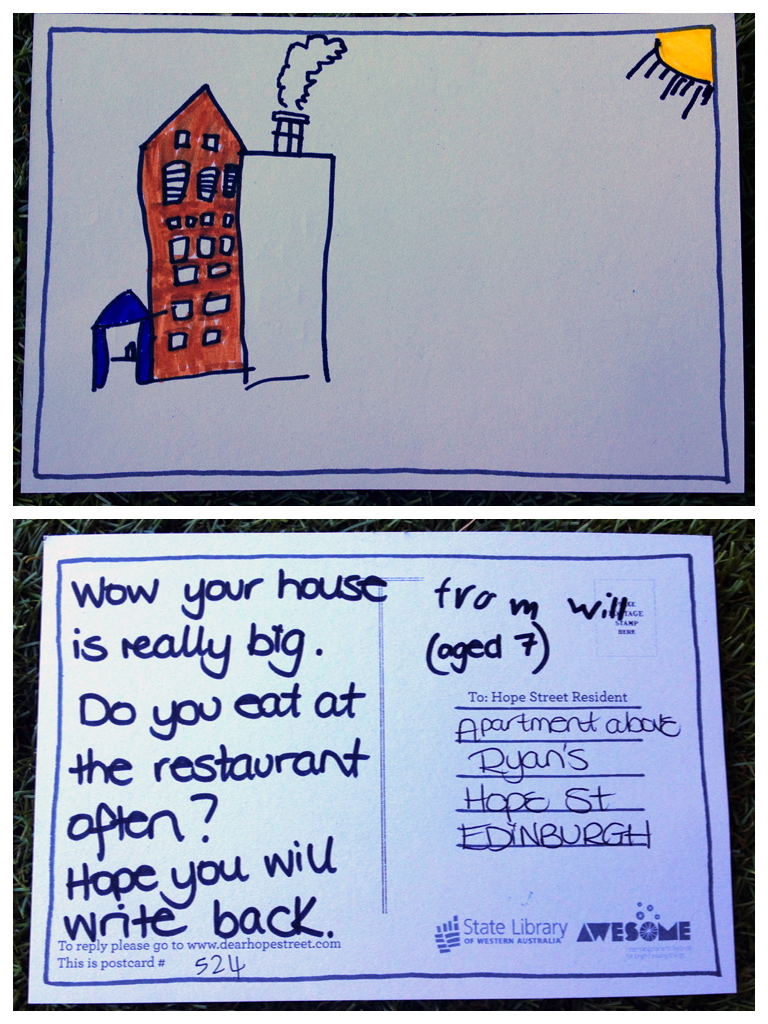 Wow your house
is really big.
Do you eat at
the restaurant
often?
Hope you will
write back.
To reply please go to www.dearhopestreet.com
This is postcard # 524
from Will
(aged 7)
STAMP
HERE
To: Hope Street Resident
Apartment above
Ryan's
Hope St
EDINBURGH
State Library
OF WESTERN AUSTRALIA
AWESOME